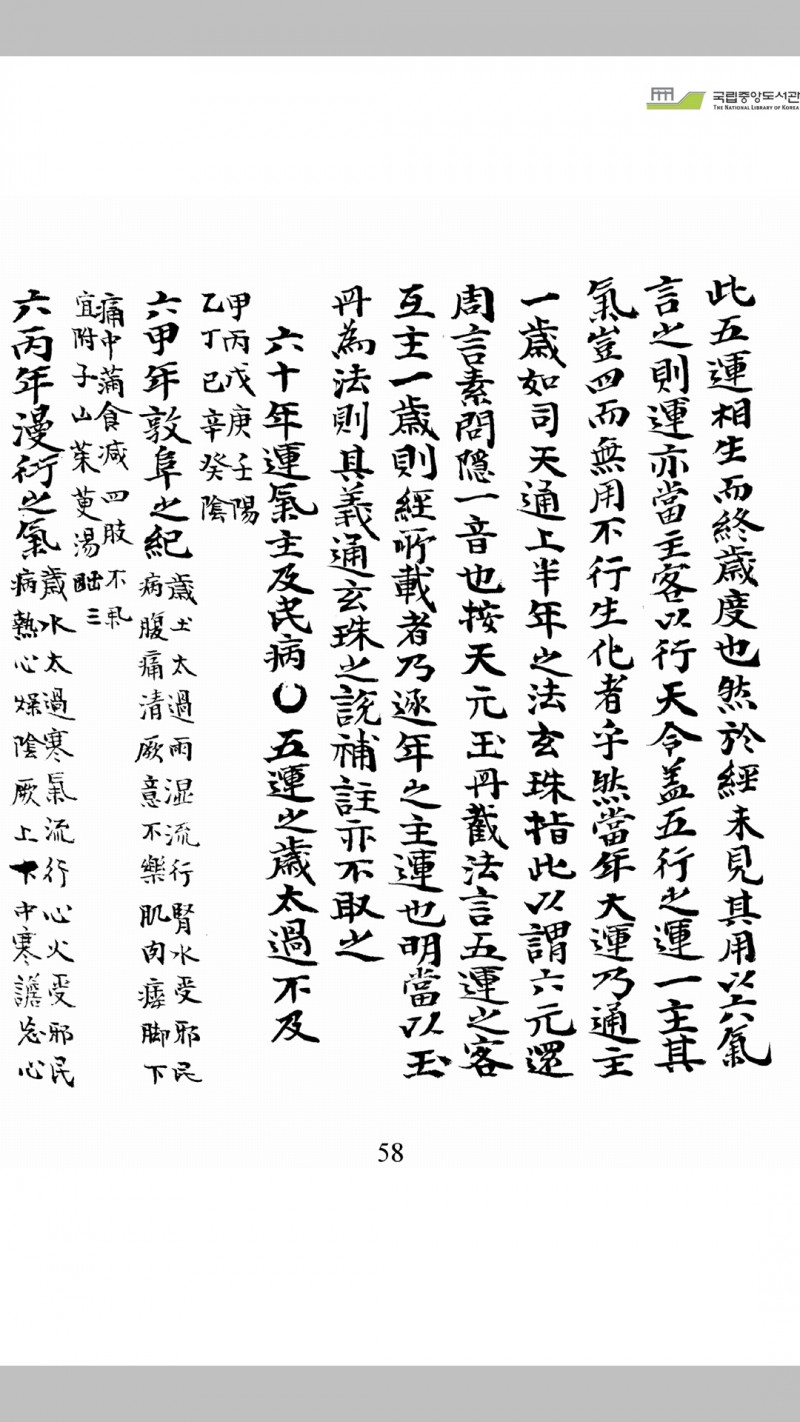 국립중앙도서관
THE NATIONAL LIBRARY OF KOREA
此五運相生而終歲度也然於經未見其用以六氣
言之則運亦當主客以行天令盖五行之運一主其
氣豈四而無用不行生化者乎然當年大運乃通主
一歲如司天通上半年之法玄珠指此以謂六元還
周言素問隱一音也按天元玉冊截法言五運之客
互主一歲則經所載者乃逐年之主運也明當以玉
冊為法則其義通玄珠之說補註亦不取之
六十年運氣主及民病〇五運之歲太過不及
甲丙戊庚壬陽
乙丁己辛癸陰
六甲年敦阜之紀
歲土太過雨湿流行腎水受邪民
病腹痛清厥意不樂肌肉痿脚下
痛中滿食减四肢不
宜附子山茱萸湯 三
六丙年漫衍之氣
歲水太過寒氣流行心火受邪民
病熱心燥陰厥上下中寒譫忘心
58